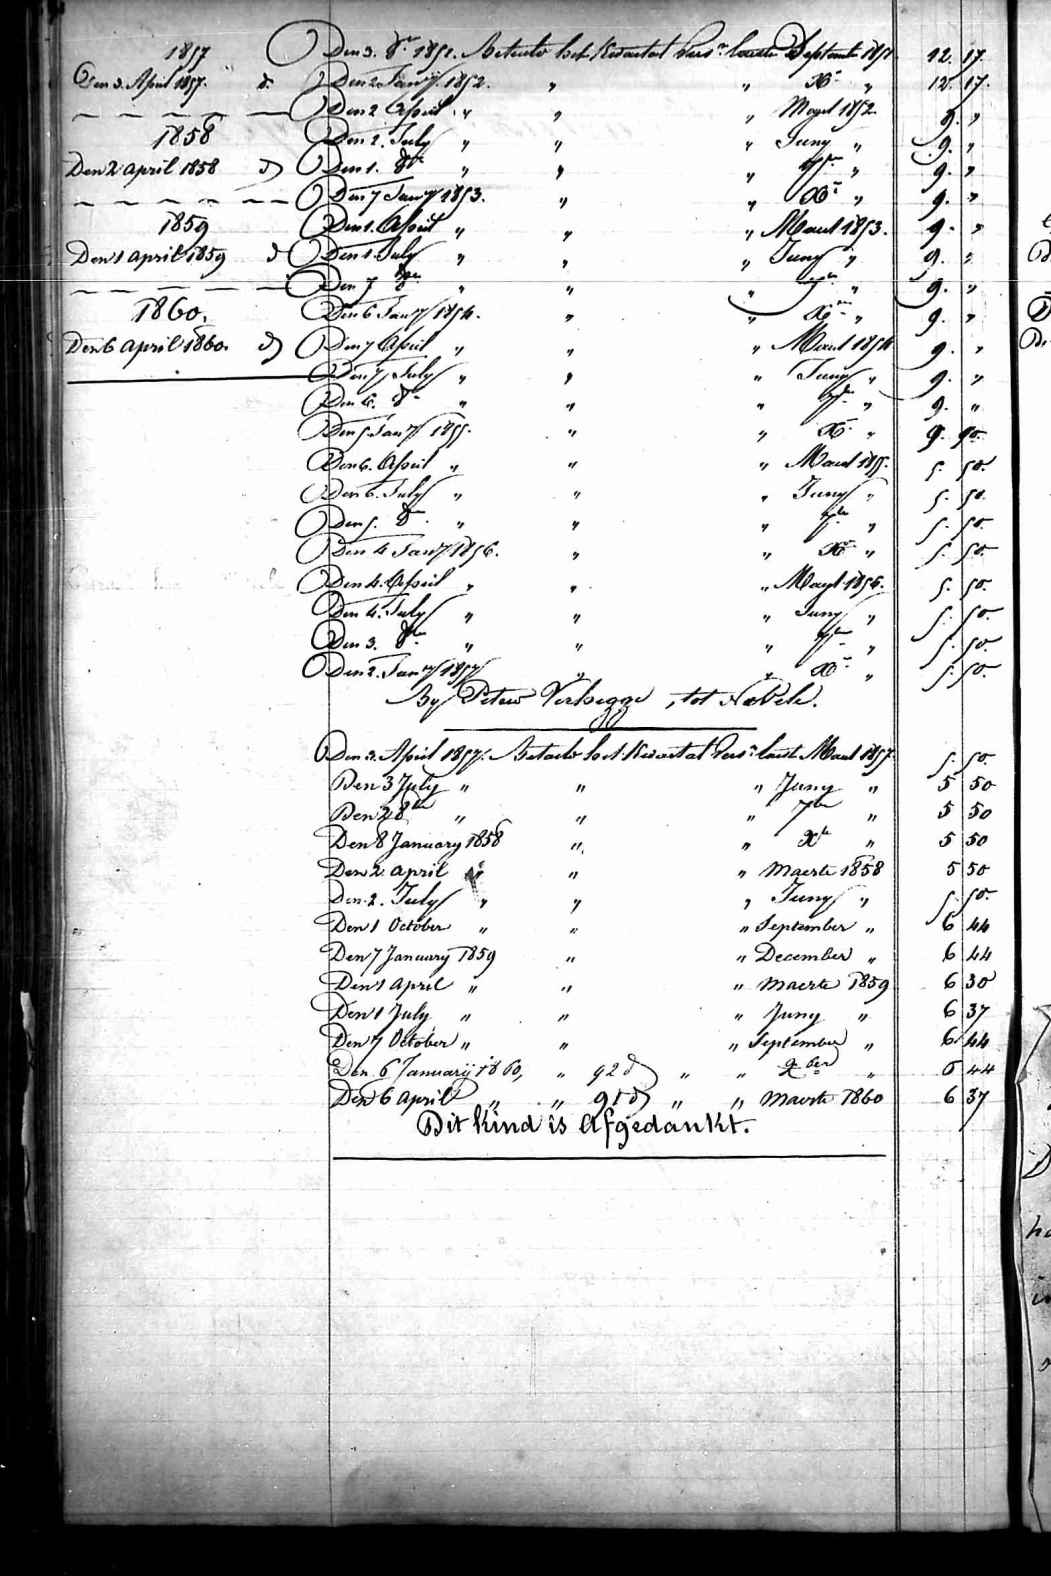 1857
Den 3. April 1857. d.
1858
Den 2 April 1858 d
1859
Den 1 April 1859 d
1860.
Den 6 April 1860. d
Den 3. 8re 1851. Betaelt het Kwartael September 1851 12. 17.
Den 2 Jany 1852. " " Xr " 12. 17.
Den 2 April " " " Maert 1852 9. "
Den 2. July " " " Juny " 9. "
Den 1. 8re " " " 7re " 9. "
Den 7 Jany 1853. " " Xr " 9. "
Den 1. April " " " Maert 1853. 9. "
Den 1. July " " " Juny " 9. "
Den 7 8re " " " 7re " 9. "
Den 6 Jany 1854. " " Xre " 9. "
Den 7 April " " " Maert 1854 9. "
Den 7 July " " " Juny " 9. "
Den 6. 8re " " " 7re " 9. "
Den 5 Jany 1855. " " Xr " 9. 90.
Den 6. April " " " Maert 1855. 5. 50.
Den 6. July " " " Juny " 5. 50.
Den 5. 8re " " " 7re " 5. 50.
Den 4 Jany 1856. " " Xr " 5. 50.
Den 4. April " " " Maert 1856. 5. 50.
Den 4. July " " " Juny " 5. 50.
Den 3. 8re " " " 7re " 5. 50.
Den 2. Jany 1857 " " Xr " 5. 50.
By Peter Verhegge, tot Nevele.
Den 3. April 1857. Betaelt het Kwartael Maert 1857 5. 50.
Den 3 July " " " Juny " 5 50
Den 2 8re " " " 7re " 5 50
Den 8 January 1858 " " Xre " 5 50
Den 2 april " " " Maerte 1858 5 50
Den 2. July " " " Juny " 5. 50.
Den 1 October " " " September " 6 44
Den 7 January 1859 " " December " 6 44
Den 1 april " " " Maerte 1859 6 30
Den 1 July " " " Juny " 6 37
Den 7 October " " " September " 6 44
Den 6 Januarij 1860, " 92 d " " Xber " 6 44
Den 6 April " " 91 d " " Maerte 1860 6 37
Dit kind is Afgedankt.